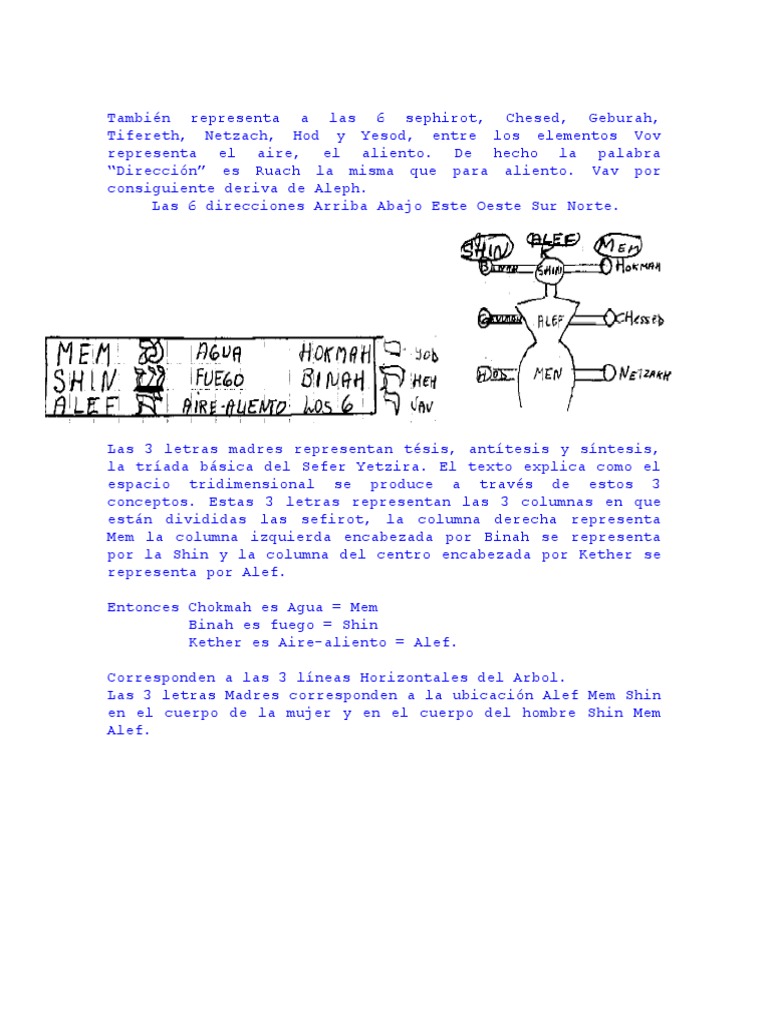 También representa a las 6 sephirot, Chesed, Geburah,
Tifereth, Netzach, Hod y Yesod, entre los elementos Vov
representa el aire, el aliento. De hecho la palabra
“Dirección” es Ruach la misma que para aliento. Vav por
consiguiente deriva de Aleph.
Las 6 direcciones Arriba Abajo Este Oeste Sur Norte.
SHIN ALEF MEM
SHIN HOKMAH
ALEF CHESSED
HOD MEN NETZAKH
MEM AGUA HOKMAH YOD
SHIN FUEGO BINAH HEH
ALEF AIRE-ALIENTO LOS 6 VAV
Las 3 letras madres representan tésis, antítesis y síntesis,
la tríada básica del Sefer Yetzira. El texto explica como el
espacio tridimensional se produce a través de estos 3
conceptos. Estas 3 letras representan las 3 columnas en que
están divididas las sefirot, la columna derecha representa
Mem la columna izquierda encabezada por Binah se representa
por la Shin y la columna del centro encabezada por Kether se
representa por Alef.
Entonces Chokmah es Agua = Mem
Binah es fuego = Shin
Kether es Aire-aliento = Alef.
Corresponden a las 3 líneas Horizontales del Arbol.
Las 3 letras Madres corresponden a la ubicación Alef Mem Shin
en el cuerpo de la mujer y en el cuerpo del hombre Shin Mem
Alef.